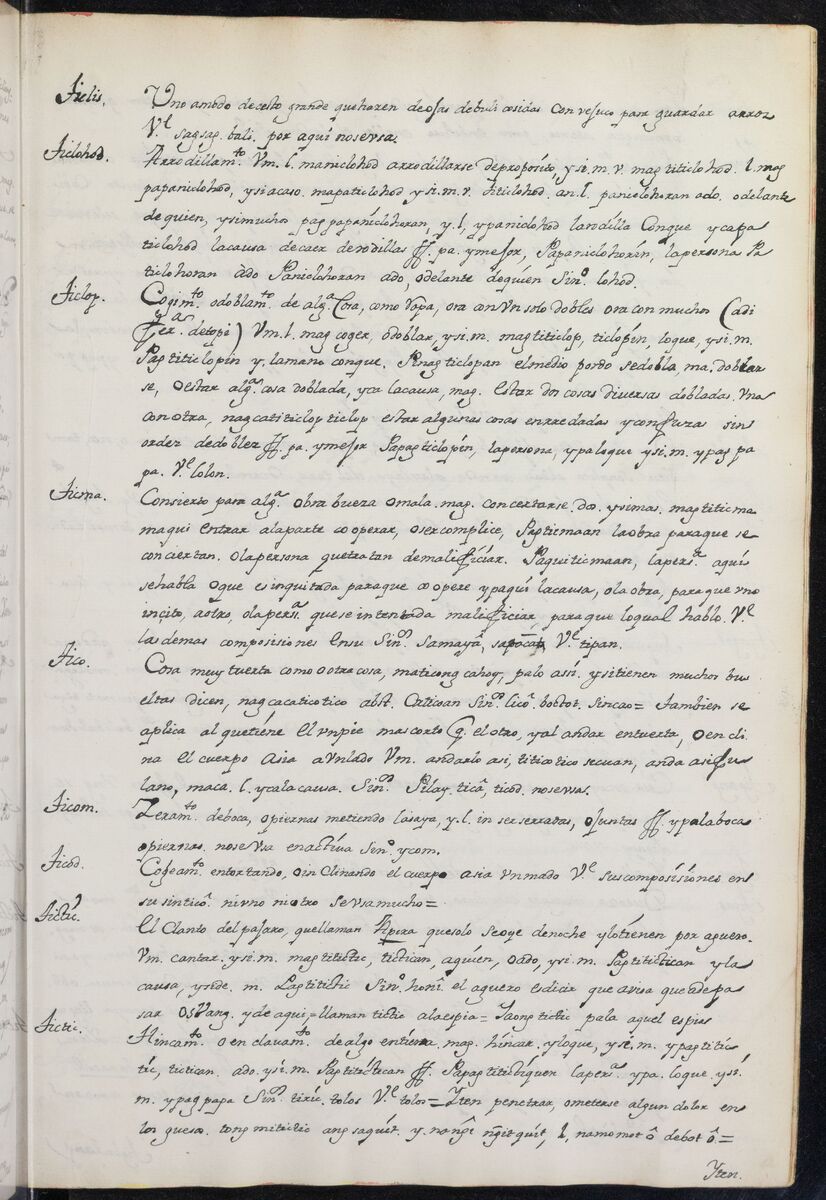 Ticlis. Uno a modo de cesto grande que hacen de ojas de buli cosidas con vejuco para guardar arroz
Vᵉ sagsag. bali. por aqui no se vsa.
Ticlohod. Arrodillamᵗᵒ. Vm. l. maniclohod arrodillarse de proposito, y si. m. v. mag titiclohod. l. mag
papaniclohod, y si acaso. mapaticlohod y si. m. v. hticlohod. an. l. paniclohoran ado. o delante
de quien, y si muchos pag papaniclohoran, y. l, y paniclohod la rodilla Conque y capa
ticlohod la causa de caer de rodillas ff. pa. y mejor, Papaniclohorin, la persona Pa
ticlohoran ado Paniclohoran ado, o delante de quien Sinᵒ. lohod.
Ticlop. Cogimᵗᵒ. o doblamᵗᵒ. de algᵃ Cosa, como ropa, ora con Vn solo dobles ora con muchos (adi
fer.ᵃ de topi) Vm. l. mag coger, o doblar, y si. m. mag titiclop, ticlopin, loque, y si. m.
Pag titiclopin y. la mano conque. Pinag ticlopan el medio por do se dobla, ma. doblar
se, o estar algᵃ cosa doblada, y ca la causa, mag. Estar dos cosas diversas dobladas. vna
con otra, nag catiticlop ticlop estar algunas cosas enrredadas y confuzas sin
orden de doblez ff. pa. y mejor Papagticlopin, la persona, y pa loque y si. m. y pag pa
pa. Vᵉ lolon.
Ticma. Consierto para algᵃ. obra buena o mala. mag. concertarse. dos. y si mas. mag titicma
maqui entrar a la parte cooperar, o ser complice, Pagticmaan la obra para que se
conciertan. o la persona que tratan de malificiar. Paquiticmaan, la persᵃ. a quis
se habla o que es inquirida para que coopere y paqui la causa, o la obra, para que vno
incito, a otro, o la persᵃ. que se intentada malificiar, para que lo qual hablo. Vᵉ
las demas composisiones En su Sinᵒ. Samaya, Vᵉ tipan.
Tico. Cosa muy tuerta como o otra cosa, maticong cahoy, palo asi. y si tienen muchos bu
eltas dicen, nag cacaticotico abst. Caticoan Sinᵒ. lico. boctot. sincao= tambien se
aplica al que tiene El vn pie mas corto q̃. el otro, y al andar entuerta, o en cli
na El cuerpo Asia a Vn lado Vm. andarlo asi, titicotico se cuan, anda asi fu
lano, maca. l. y ca la causa. Sinᵒ. Pilay. tica, ticod. no se vsa.
Ticom. Zeramᵗᵒ. de boca, o piernas metiendo la saya, y. l. in ser serradas, o juntas ff y pa la boca
o piernas. no se vsa en activa Sinᵒ ycom.
Ticod. Cogeamᵗᵒ. entortando, o in Clinando el cuerpo asia vn mado Vᵉ sus composisiones en
su sin tico. ni vno ni otro se vsa mucho=
Tictic. El Canto del pajaro, que llaman Apira que solo se oye de noche y lo tienen por aguero.
Vm. cantar. y si. m. mag titictic, tictican, a quien, o ado, y si. m. Pag titictican y la
causa, y sde. m. Pagtitictic Sinᵒ. honi. el aguero es dicir que avisa que a de pa
sar Osvang. y de aqui= llaman tictic a la espia= Yaong tictic pala aquel espias
Tictic. Hincamᵗᵒ. o en clavamᵗᵒ. de algo en tierra, mag. hincar. y loque, y si. m. y pag titic
tic, tictican. ado. y si. m. Pag titictican ff. Papagtitictiquen la persᵃ. y pa. loque. y si.
m. y pag papa Sinᵒ. tiric. tolos Vᵉ tolos= Yten penetrar, o meterse algun dolor en
los guesos. tong mitictic ang saquit. y. nangi ngitquit, l, namomot ô debot ô=
Yten.